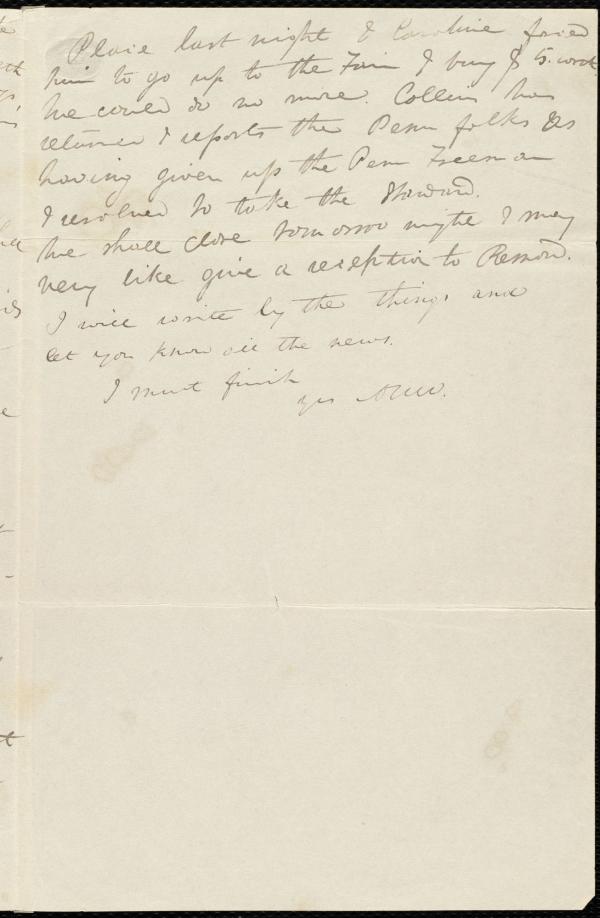 Place last night & Caroline forced
him to go up to the Fair & buy $ 5. worth
he could do no more. Collins has
returned & reports the Penn folks as
having given up the Penn Freeman
& resolved to take the Standard.
We shall close tomorrow night & may
very like give a reception to Remond.
I will write by the things and
let you know all the news.
I must finish
yrs AWW.